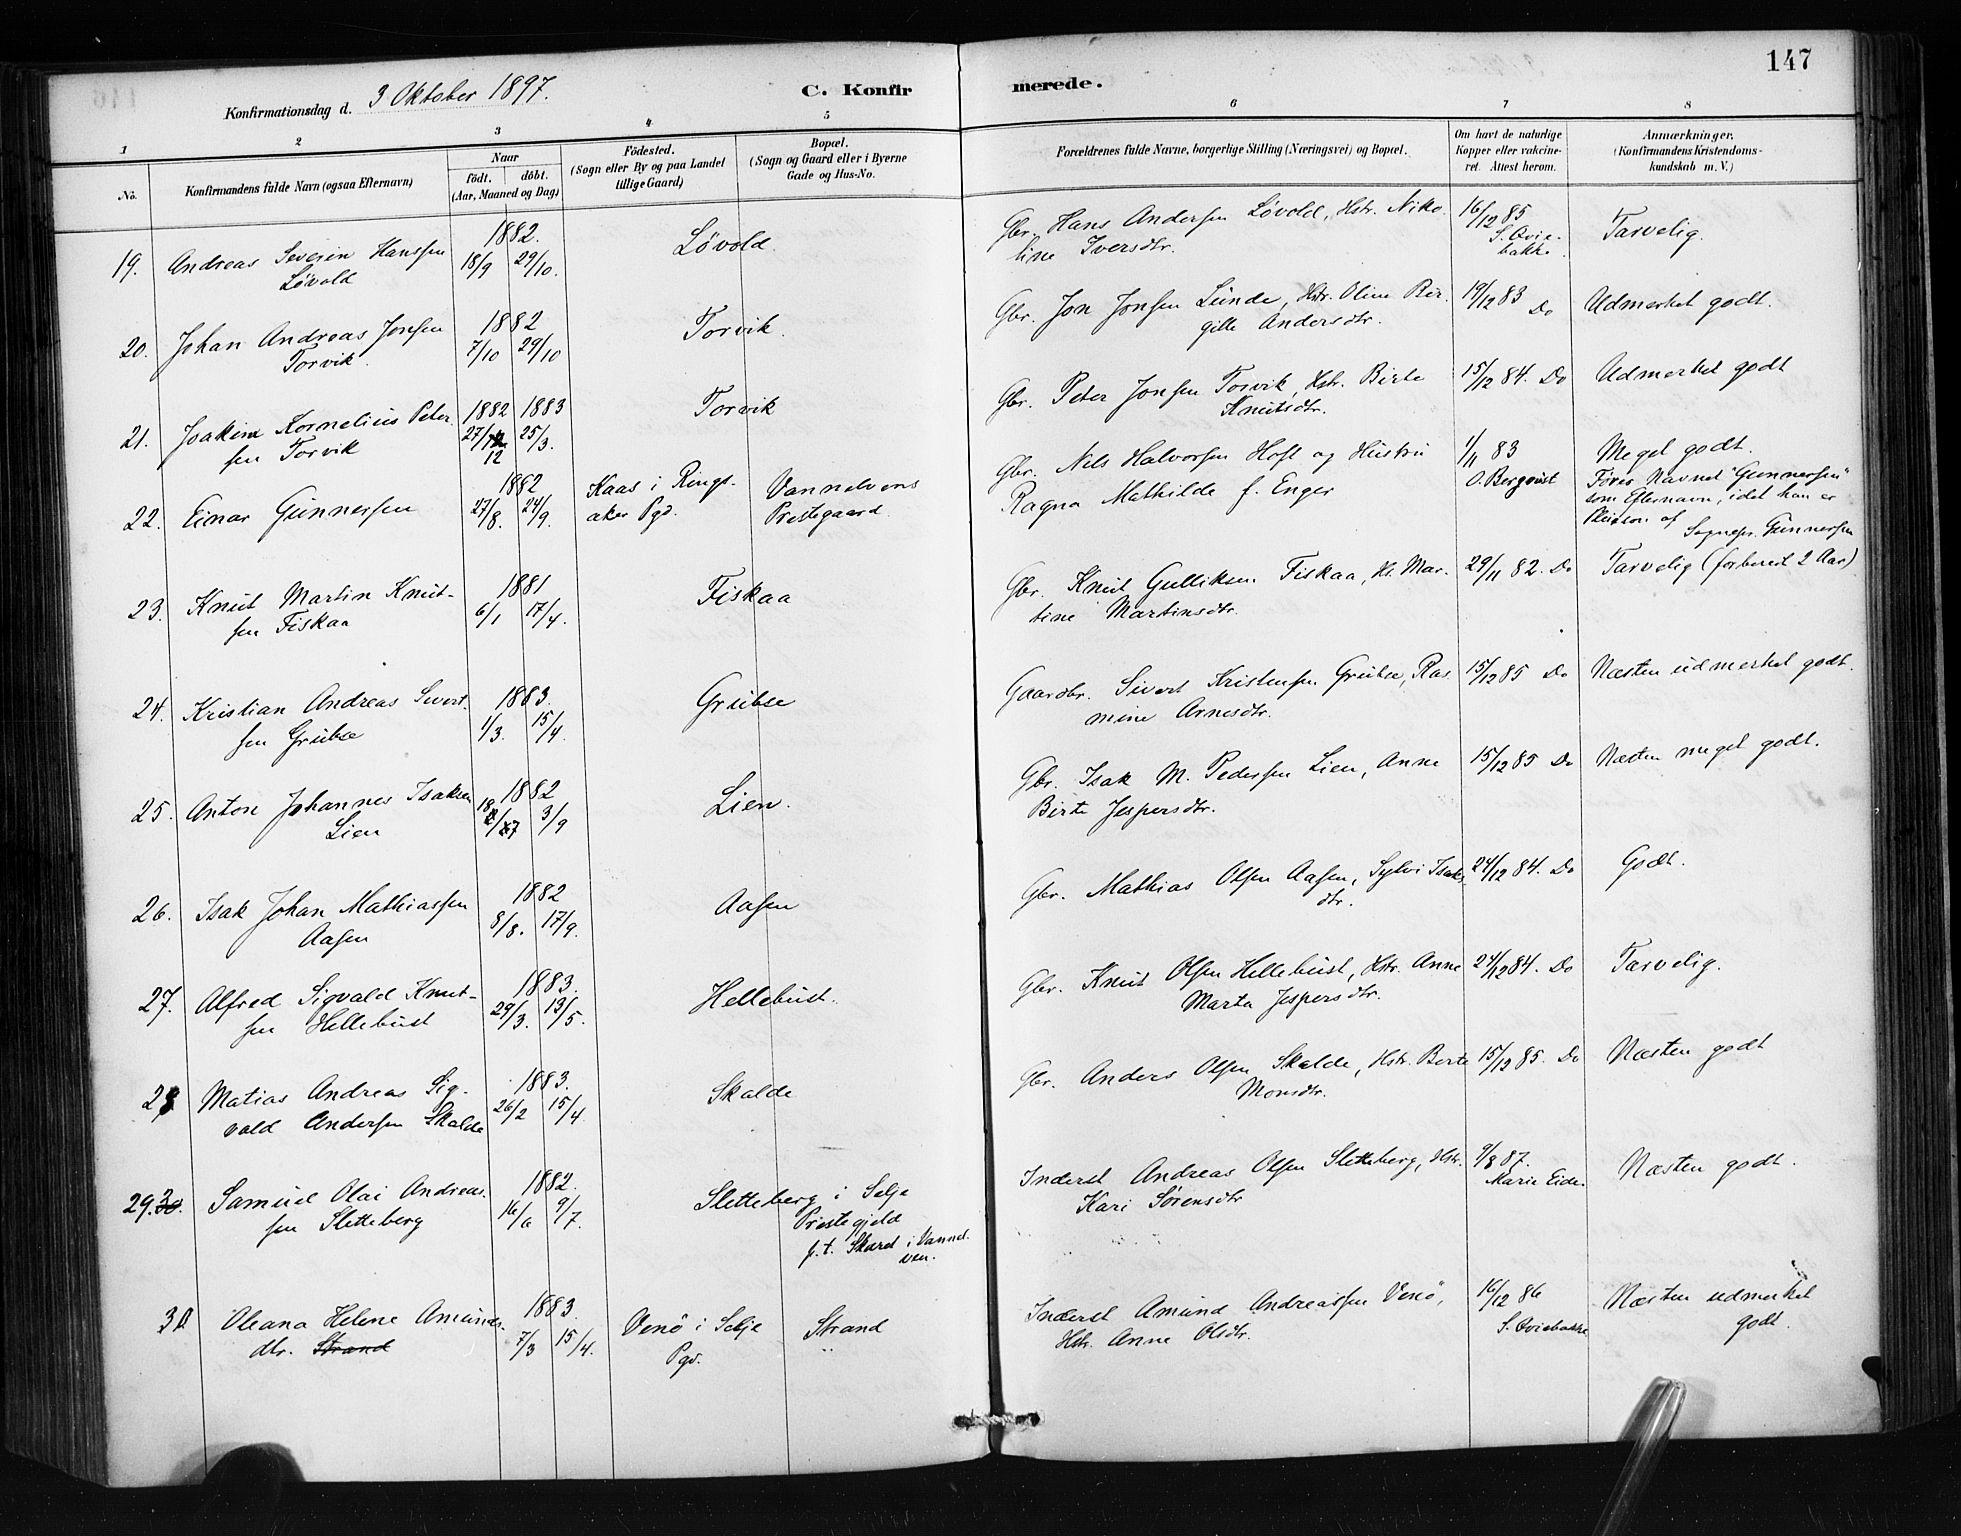 147
Konfirmationsdag d. 3 Oktober 1897.
C. Konfirmerede.
1 2 3 4 5 6 7 8
No.
Konfirmandens fulde Navn (ogsaa Efternavn)
Naar
födt. döbt.
(Aar, Maaned og Dag)
Födested.
(Sogn eller By og paa Landet
tillige Gaard)
Bopæl.
(Sogn og Gaard eller i Byerne
Gade og Hus-No.
Forældrenes fulde Navne, borgerlige Stilling (Næringsvei) og Bopæl.
Om havt de naturlige
Kopper eller vakcine-
ret. Attest herom.
Anmærkninger.
(Konfirmandens Kristendoms-
kundskab m. V.)
19. Andreas Severin Hanssen
Løvold
1882.
18/9 29/10.
Løvold
Gbr. Hans Andersen Løvold, Hstr. Niko-
line Iversdtr.
16/12 85
S. Qvie-
bakke.
Tarvelig.
20. Johan Andreas Jonsen
Torvik
1882
7/10 29/10
Torvik.
Gbr. Jon Jonsen Lunde, Hstr. Oline Bir-
gitte Andersdtr.
19/12 83 Do
Udmerket godt.
21. Joakim Kornelius Peter-
sen Torvik
1882 1883
27/12 25/3.
12
Torvik
Gbr. Peter Jonsen Torvik, Hstr. Birte
Knutsdtr.
15/12 84. Do
Udmerket godt
22. Einar Gunnersen
1882
27/8. 24/9.
Kaas i Rings-
aker Pgd.
Vannelvens
Prestegaard
Gbr. Nils Halvorsen Hoft og Hustru
Ragna Mathilde f. Enger
1/11 83
O. Bergqvist
Meget godt.
Fører Navnet "Gunnersen"
som Efternavn, idet han er
Pleiesøn af
Sognepr. Gunnersen
23. Knut Martin Knut-
sen Fiskaa
1881
6/1 17/4.
Fiskaa
Gbr. Knut Gulliksen Fiskaa, Hs. Mar-
tine Martinsdtr.
29/11 82. Do
Tarvelig (forberedt 2 Aar)
24. Kristian Andreas Sivert-
sen Grubse
1883.
1/3. 15/4.
Grubse
Gaardbr. Sivert Kristensen Grubse, Ras-
mine Arnesdtr.
15/12 85 Do
Næsten udmerket godt.
25. Anton Johannes Isaksen
Lien
1882
18/7 3/9
Lien.
Gbr. Isak M. Pedersen Lien, Anne
Birte Jespersdtr.
15/12 85 Do
Næsten meget godt.
26. Isak Johan Mathiassen
Aasen
1882
8/8. 17/9.
Aasen
Gbr. Mathias Olsen Aasen, Sylvi Isaks-
dtr.
24/12 84. Do
Godt.
27. Alfred Sigvald Knut-
sen Hellebust
1883.
29/3. 13/5.
Hellebust.
Gbr. Knut Olsen Hellebust, Hstr. Anne
Marta Jespersdtr.
24/12 84. Do
Tarvelig.
28 Matias Andreas Sig-
vald Andersen Skalde
1883.
26/2 15/4.
Skalde
Gbr. Anders Olsen Skalde, Hstr. Berte
Monsdtr.
15/12 85. Do
Næsten godt
29. 30. Samuel Olai Andreas-
sen Sletteberg
1882.
16/6 9/7.
Sletteberg i Selje
Prestegjeld
p. t. Skared i Vannel-
ven.
Inderst Andreas Olsen Sletteberg, Hstr.
Kari Sørensdtr
9/8 87.
Marie Eide.
Næsten godt.
30 Oleana Helene Amunds-
dtr. Strand
1883.
7/3 15/4.
Venø i Selje
Pgd.
Strand
Inderst Amund Andreassen Venø,
Hstr. Anne Olsdtr.
16/12 86
S. Qviebakke
Næsten udmerket
godt.